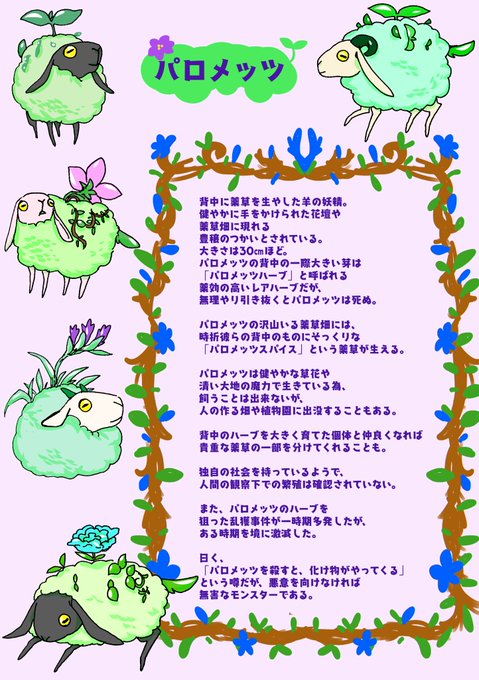 パロメッツ
背中に薬草を生やした羊の妖精。
健やかに手をかけられた花壇や
薬草畑に現れる
豊穣のつかいとされている。
大きさは30㎝ほど。
パロメッツの背中の一際大きい芽は
「パロメッツハーブ」と呼ばれる
薬効の高いレアハーブだが、
無理やり引き抜くとパロメッツは死ぬ。
パロメッツの沢山いる薬草畑には、
時折彼らの背中のものにそっくりな
「パロメッツスパイス」という薬草が生える。
パロメッツは健やかな草花や
清い大地の魔力で生きている為、
飼うことは出来ないが、
人の作る畑や植物園に出没することもある。
背中のハーブを大きく育てた個体と仲良くなれば
貴重な薬草の一部を分けてくれることも。
独自の社会を持っているようで、
人間の観察下での繁殖は確認されていない。
また、パロメッツのハーブを
狙った乱獲事件が一時期多発したが、
ある時期を境に激減した。
曰く、
「パロメッツを殺すと、化け物がやってくる」
という噂だが、悪意を向けなければ
無害なモンスターである。